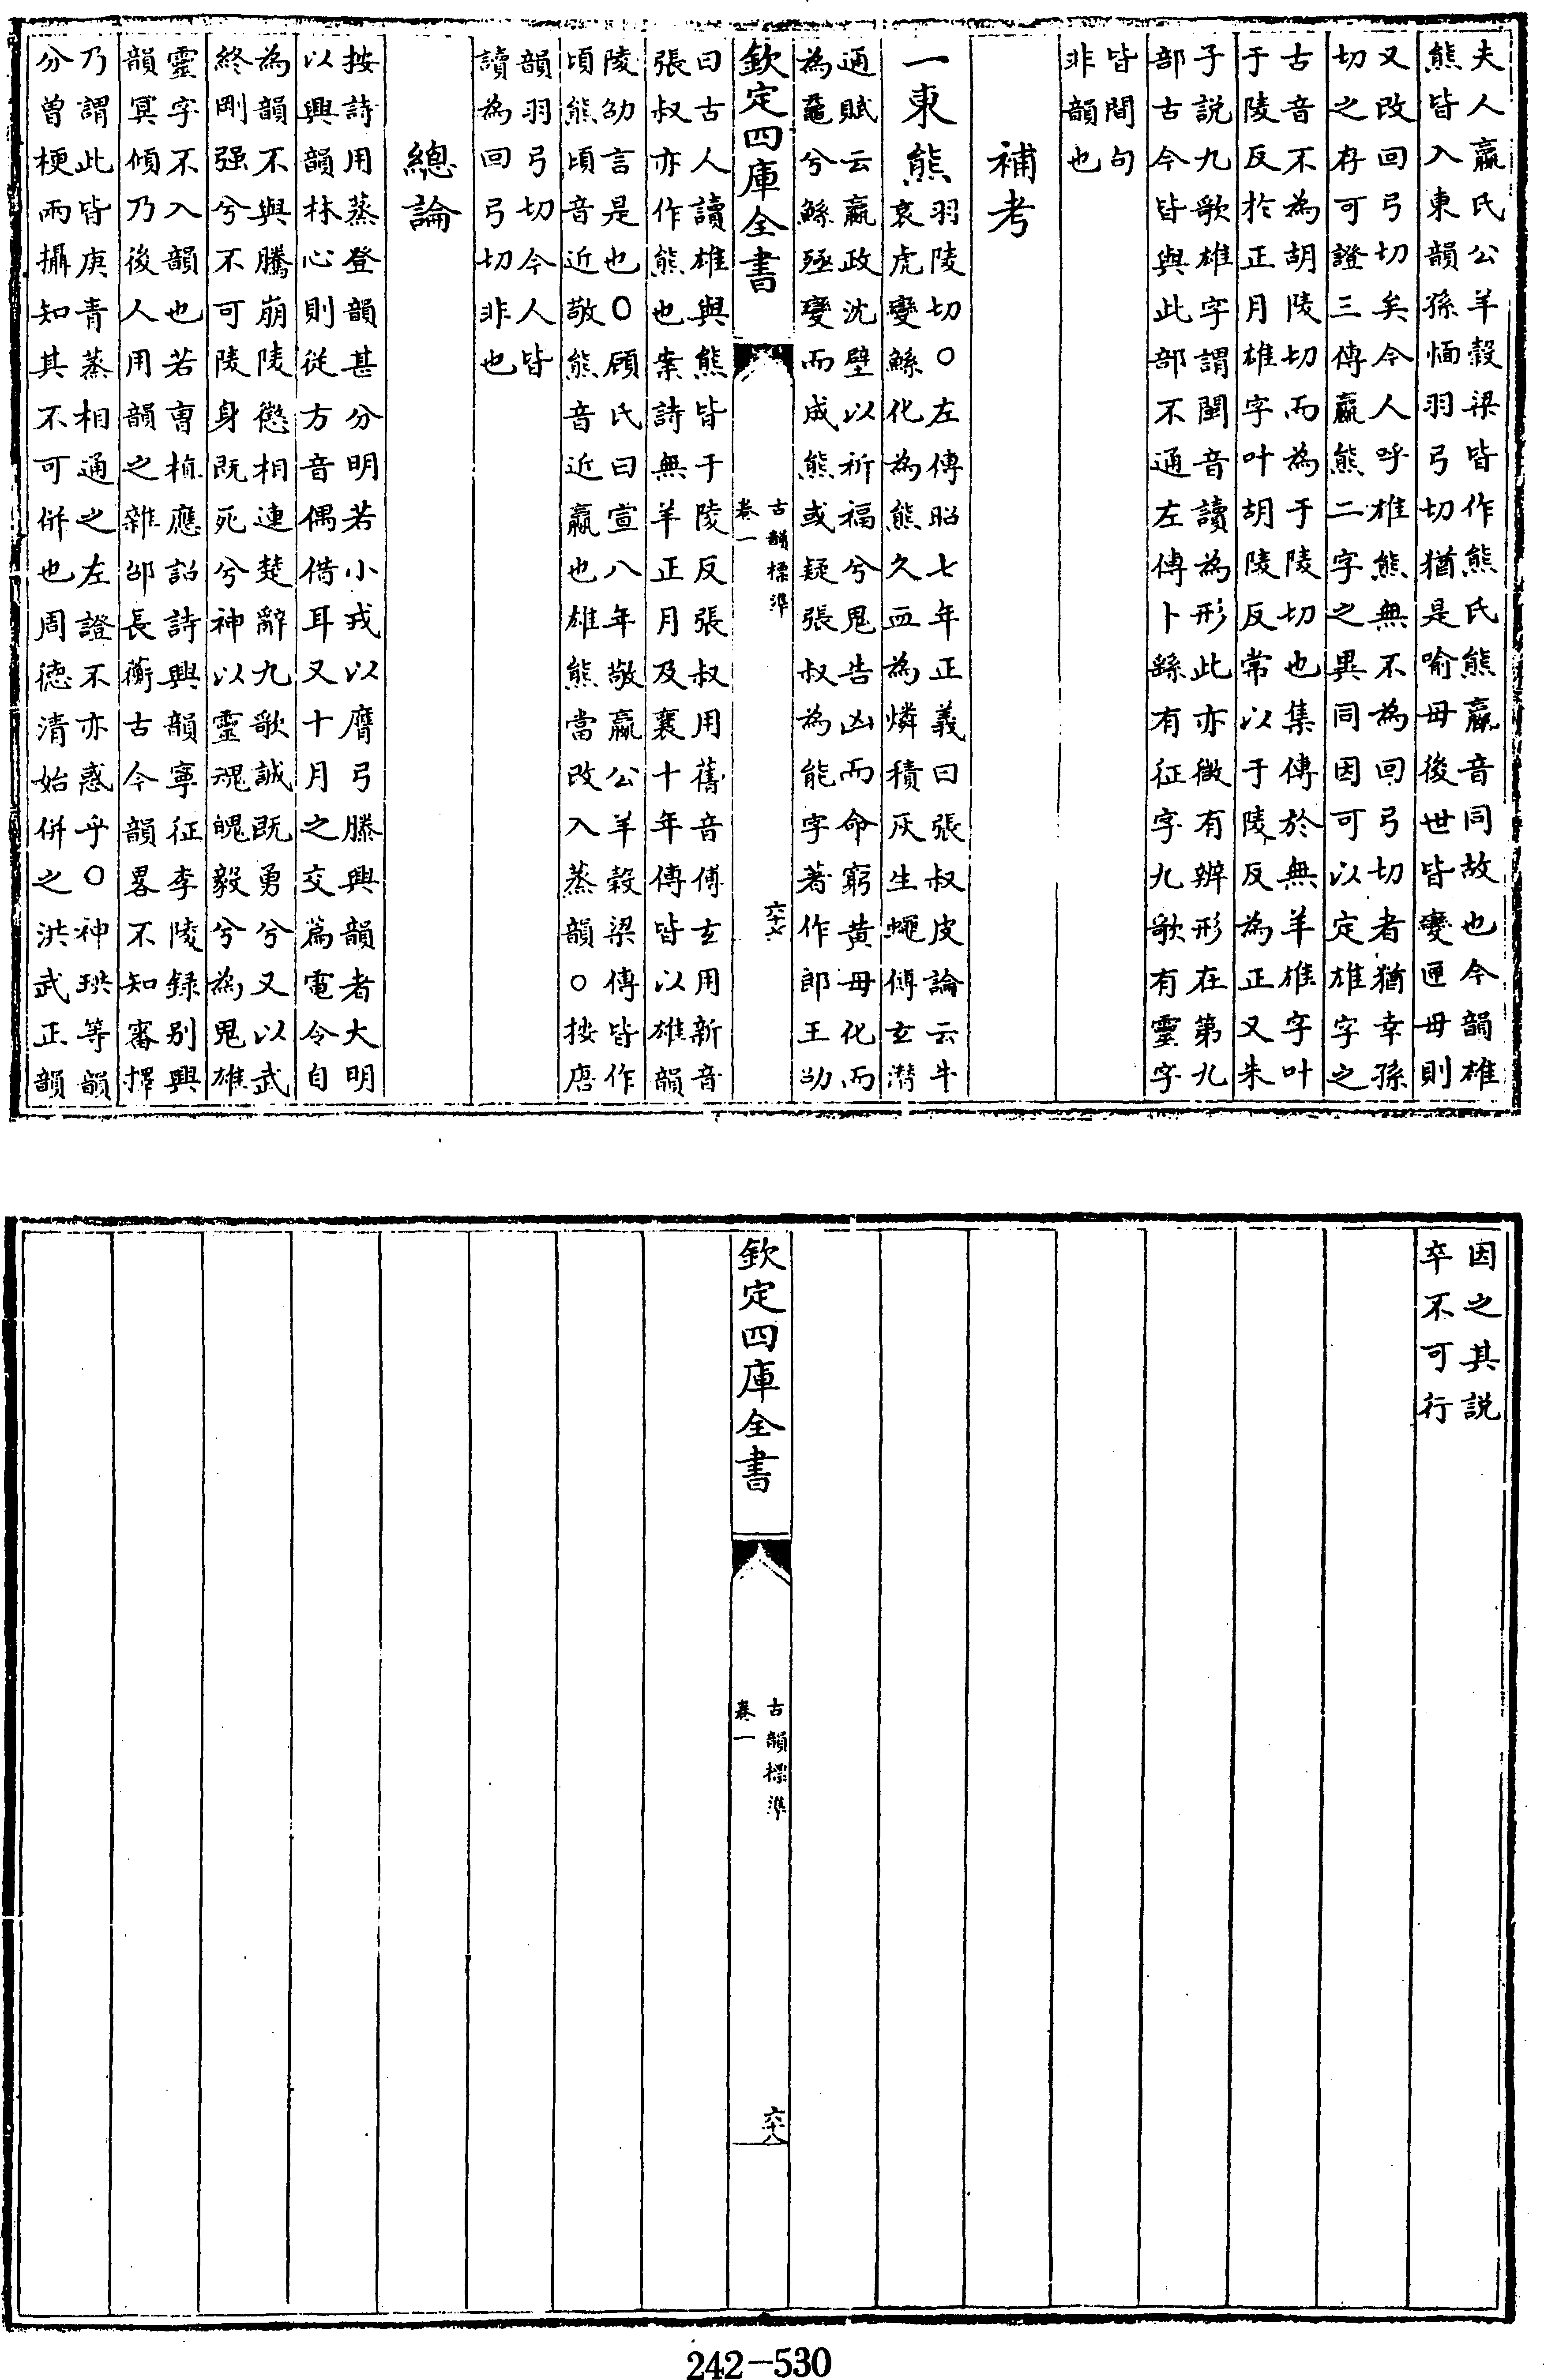 夫人嬴氏公羊穀梁皆作熊氏熊嬴音同故也今韻雄
熊皆入東韻孫愐羽弓切猶是喻母後世皆變匣母則
又改回弓切矣今人呼雄熊無不為回弓切者猶幸孫
切之存可證三傳嬴熊二字之異同因可以定雄字之
古音不為胡陵切而為于陵切也集傳於無羊雄字叶
于陵反於正月雄字叶胡陵反常以于陵反為正又朱
子説九歌雄字謂閩音讀為形此亦微有辨形在第九
部古今皆與此部不通左傳卜繇有征字九歌有靈字
皆間句
非韻也
補考
一東熊
羽陵切○左傳昭七年正義曰張叔皮論云牛
哀虎變鯀化為熊久血為燐積灰生蠅傅玄潛
通賦云嬴政沈璧以祈福兮鬼告凶而命窮黄母化而
為黿兮鯀殛變而成熊或疑張叔為能字著作郎王劭
欽定四庫全書
古韻標準
卷一
六十七
曰古人讀雄與熊皆于陵反張叔用舊音傅玄用新音
張叔亦作熊也案詩無羊正月及襄十年傳皆以雄韻
陵劭言是也○顧氏曰宣八年敬嬴公羊穀梁傳皆作
頃熊頃音近敬熊音近嬴也雄熊當改入蒸韻○按唐
韻羽弓切今人皆
讀為回弓切非也
總論
按詩用蒸登韻甚分明若小戎以膺弓滕興韻者大明
以興韻林心則從方音偶借耳又十月之交篇電令自
為韻不與騰崩陵懲相連楚辭九歌誠既勇兮又以武
終剛强兮不可陵身既死兮神以靈魂魄毅兮為鬼雄
靈字不入韻也若曹植應詔詩興韻寧征李陵録别興
韻冥傾乃後人用韻之雜邵長蘅古今韻畧不知審擇
乃謂此皆庚青蒸相通之左證不亦惑乎○神珙等韻
分曾梗兩攝知其不可併也周德清始併之洪武正韻
因之其説
卒不可行
欽定四庫全書
古韻標準
卷一
六十八
242-530